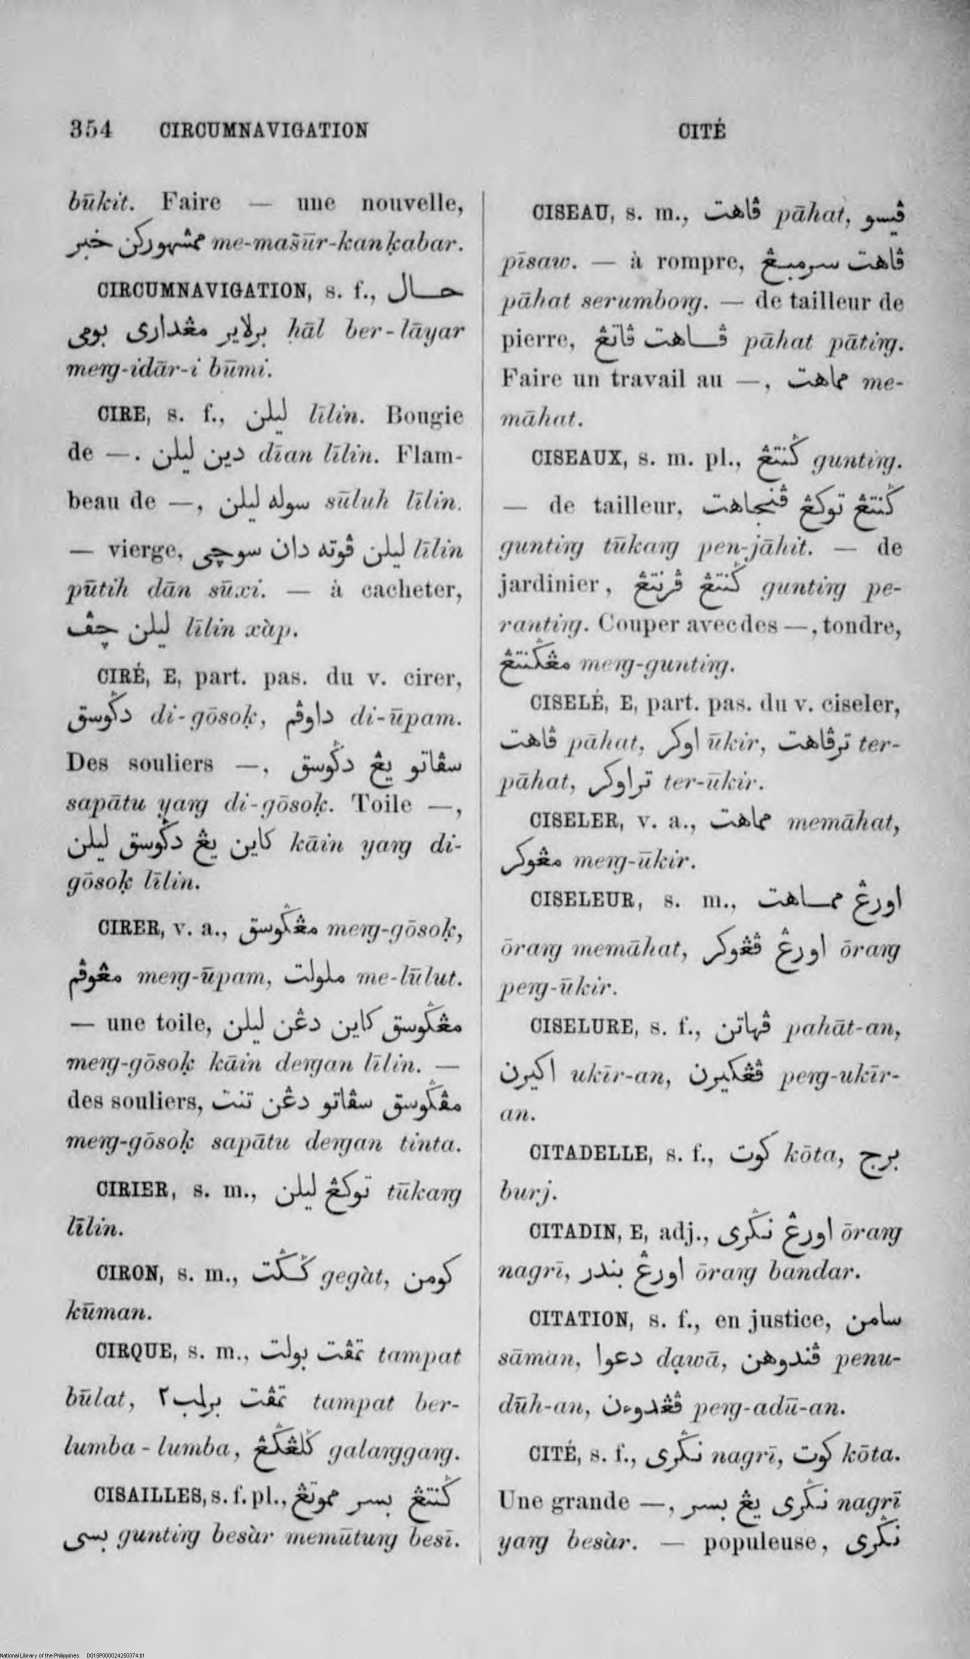 354 CIRCUMNAVIGATION CITÉ
būkit. Faire — une nouvelle,
مشهوركن خبر me-mašūr-kan ḳabar.
CIRCUMNAVIGATION, s. f., حال
برلاير مڠداري بومي ḥāl ber-lāyar
meŋg-idār-i būmi.
CIRE, s. f., ليلن līlin. Bougie
de —. دين ليلن dīan līlin. Flam-
beau de —, سوله ليلن sūluh līlin.
— vierge, ليلن ڤوته دان سوچي līlin
pūtih dān sūxi. — à cacheter,
ليلن چڤ līlin xàp.
CIRÉ, E, part. pas. du v. cirer,
دݢوسق di-gōsoḳ, داوڤم di-ūpam.
Des souliers —, سڤاتو يڠ دݢوسق
sapātu yaŋg di-gōsoḳ. Toile —,
كاين يڠ دݢوسق ليلن kāin yaŋg di-
gōsoḳ līlin.
CIRER, v. a., مڠݢوسق meŋg-gōsoḳ,
مڠوڤم meŋg-ūpam, ملولت me-lūlut.
— une toile, مڠݢوسق كاين دڠن ليلن
meŋg-gōsoḳ kāin deŋgan līlin. —
des souliers, مڠݢوسق سڤاتو دڠن تنت
meŋg-gōsoḳ sapātu deŋgan tinta.
CIRIER, s. m., توكڠ ليلن tūkaŋg
līlin.
CIRON, s. m., ݢݢت gegàt, كومن
kūman.
CIRQUE, s. m., تمڤت بولت tampat
būlat, تمڤت برلمب٢ tampat ber-
lumba-lumba, ݢلڠݢڠ galaŋggaŋg.
CISAILLES, s. f. pl., ݢنتڠ بسر مموتڠ
بسي guntiŋg besàr memūtuŋg besī.
CISEAU, s. m., ڤاهت pāhat, ڤيسو
pīsaw. — à rompre, ڤاهت سرمبڠ
pāhat serumboŋg. — de tailleur de
pierre, ڤاهت ڤاتڠ pāhat pātiŋg.
Faire un travail au —, مماهت me-
māhat.
CISEAUX, s. m. pl., ݢنتڠ guntiŋg.
— de tailleur, ݢنتڠ توكڠ ڤنجاهت
guntiŋg tūkaŋg pen-jāhit. — de
jardinier, ݢنتڠ ڤرنتڠ guntiŋg pe-
rantiŋg. Couper avec des —, tondre,
مڠݢنتڠ meŋg-guntiŋg.
CISELÉ, E, part. pas. du v. ciseler,
ڤاهت pāhat, اوكر ūkir, ترڤاهت ter-
pāhat, تراوكر ter-ūkir.
CISELER, v. a., مماهت memāhat,
مڠوكر meŋg-ūkir.
CISELEUR, s. m., اورڠ مماهت
ōraŋg memāhat, اورڠ ڤڠوكر ōraŋg
peŋg-ūkir.
CISELURE, s. f., ڤهاتن pahāt-an,
اكيرن ukīr-an, ڤڠكيرن peŋg-ukīr-
an.
CITADELLE, s. f., كوت kōta, برج
burj.
CITADIN, E, adj., اورڠ نݢري ōraŋg
nagrī, اورڠ بندر ōraŋg bandar.
CITATION, s. f., en justice, سامن
sāman, دعوا dạwā, ڤندوهن penu-
dūh-an, ڤڠدوءن peŋg-adū-an.
CITÉ, s. f., نݢري nagrī, كوت kōta.
Une grande —, نݢري يڠ بسر nagrī
yaŋg besàr. — populeuse, نݢري
National Library of the Philippines